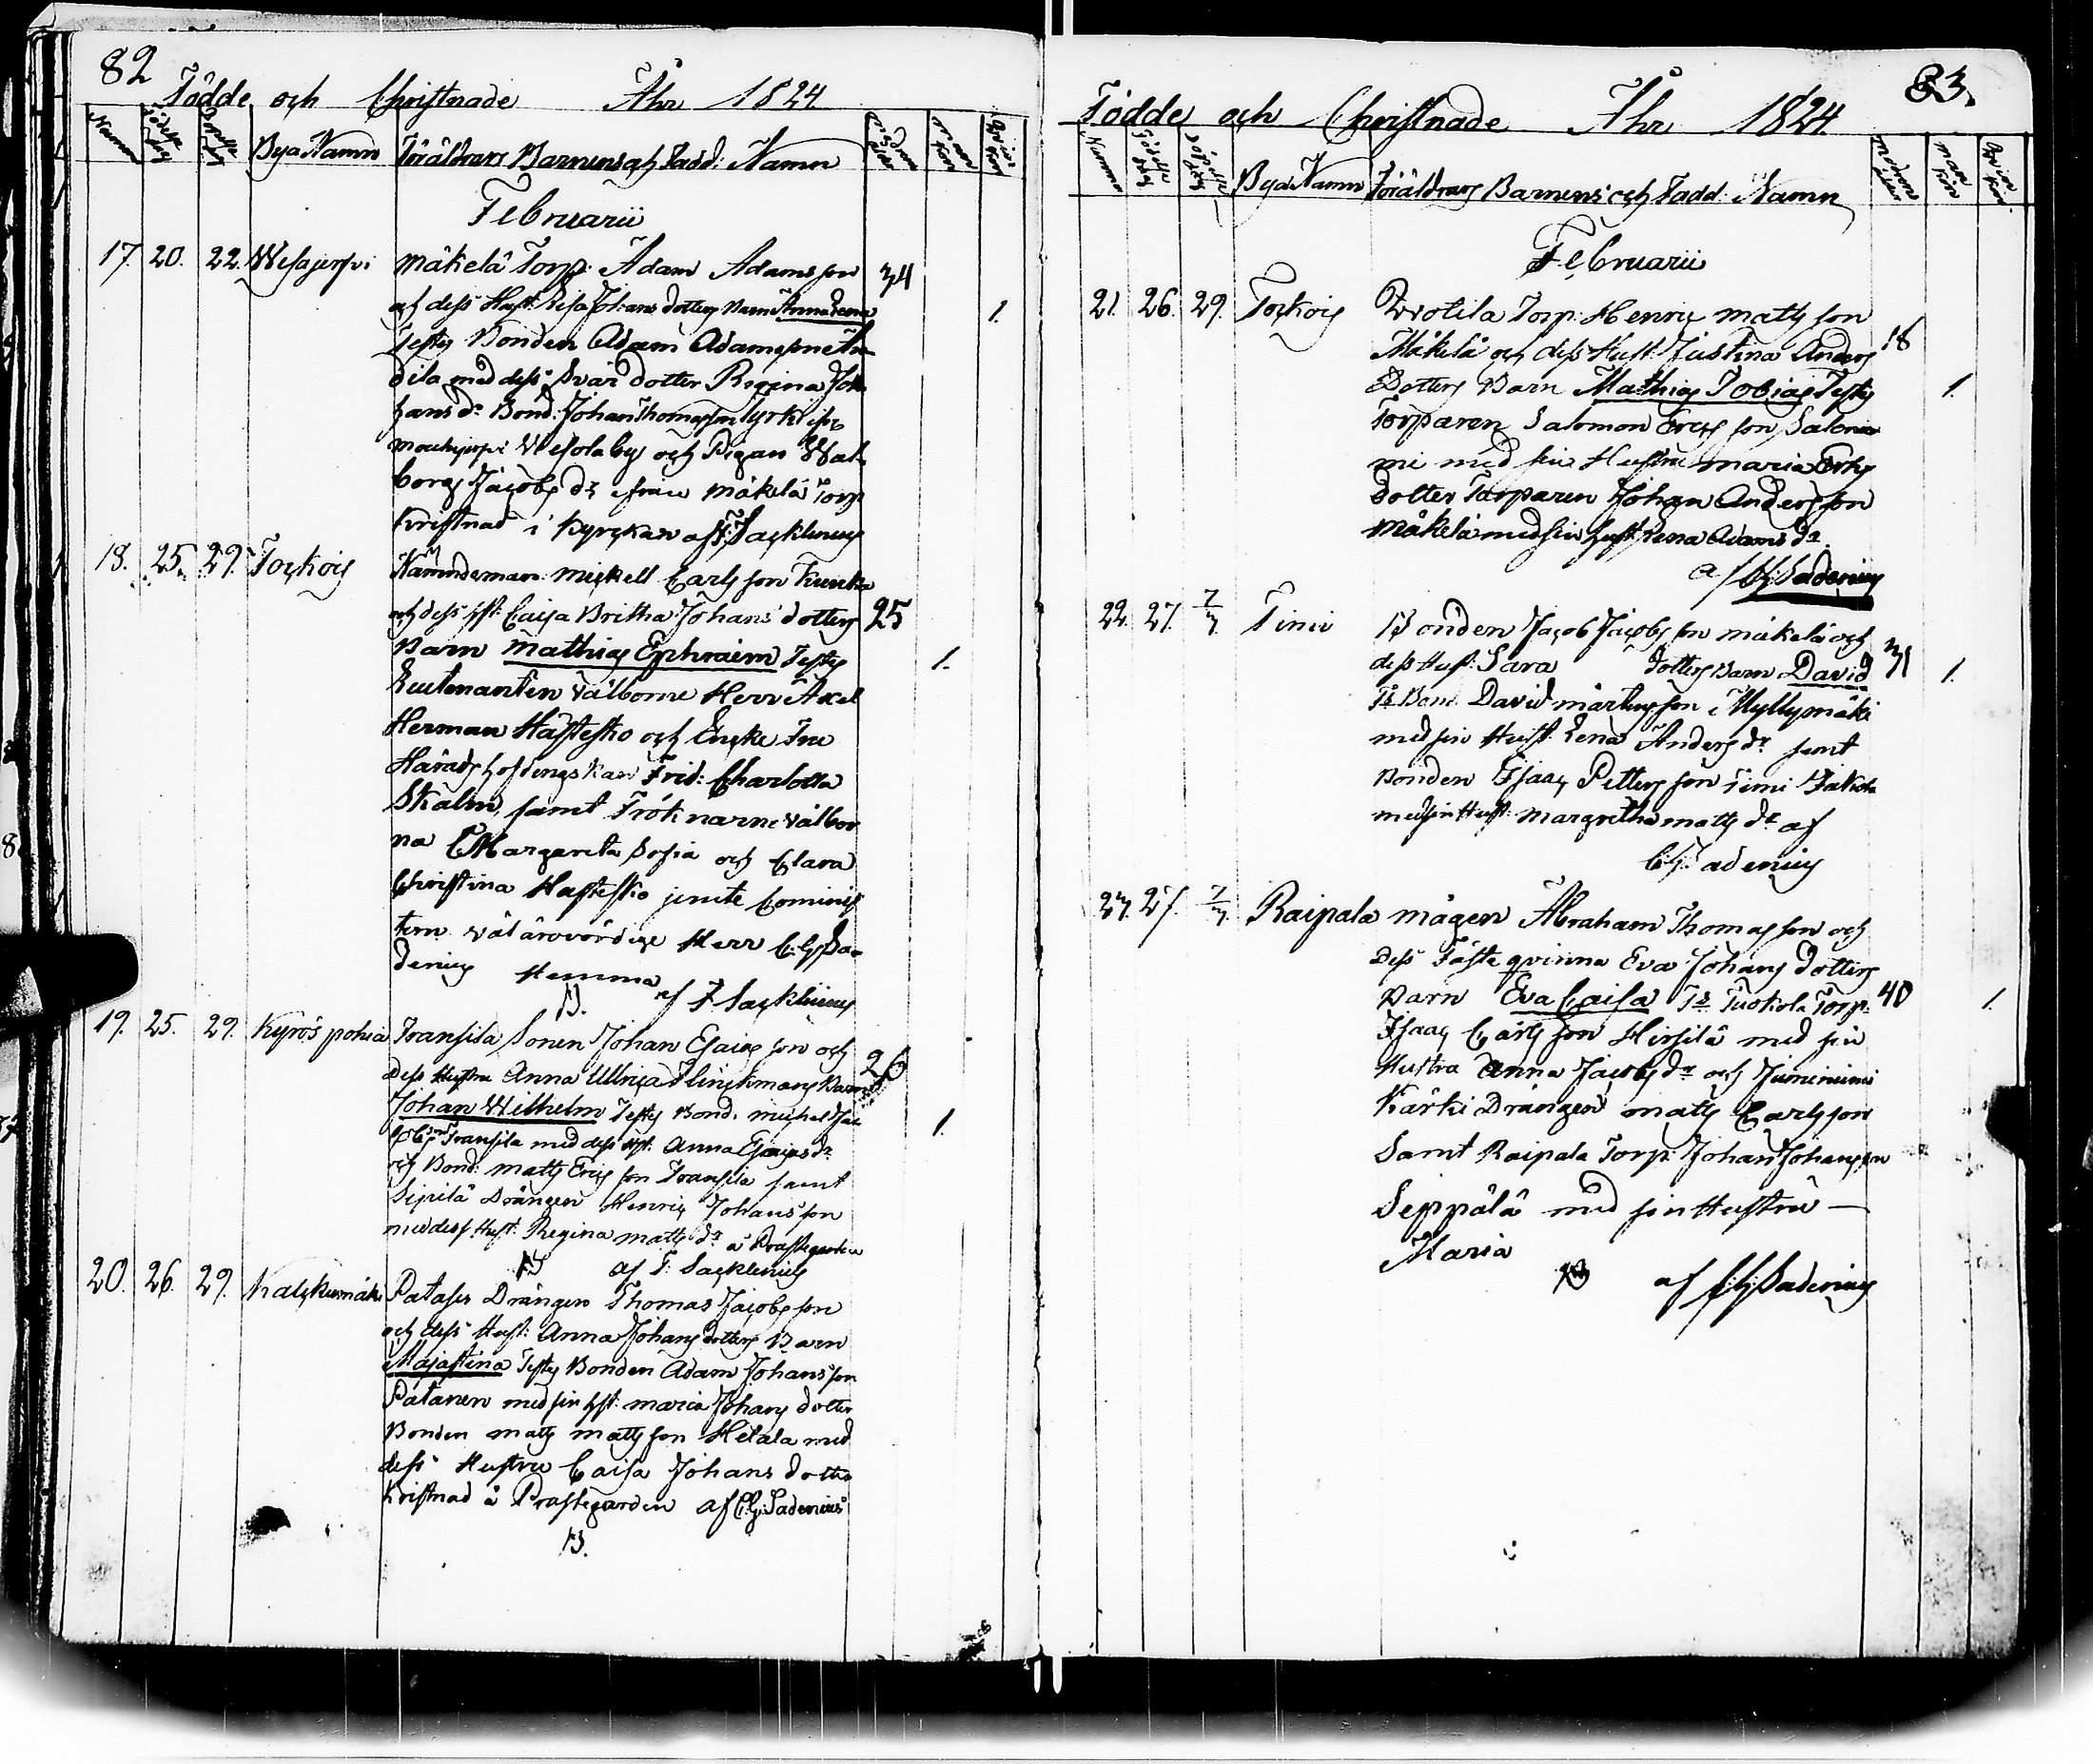 82
Födde och Christnade Åhr 1824
Bya Namn Föräldrars Barnens och Fadd: Namn
Februarii
17. 20. 22. Wesajerfvi Mäkelä Torp: Adam Adamsson 34
och dess Hust: Lisa Johans dotters Barn Anna Lena 1.
Testes Bonden Adam Adamsson
dila med dess Svär dotter Regina Jo-
hans dr Bond: Johan Thomasson
Vesola by och Pigan Wal-
borg Jacobs dr ifrån Mäkelä Torp
Kristnad i Kyrckan af F: Sacklenius
18. 25. 29. Forckois Nämndeman Mickell Carlsson
och dess Hst: Caisa Britha Johans dotters 25
Barn Mathias Ephraim Testes 1.
Leutenanten Välborne Herr Axel
Herman Hästesko och Encke Fru
Häradshöfdingskan Frid: Charlotta
Skalm, samt Fröknarne Välbor
na Margareta Sofia och Clara
Christina Hästesko jemte Cominis
tern välärovördige Herr C: G: Sa-
denius Hemma
B. af F Sacklenius
19. 25. 29. Kyröspohia Fransila Sonen Johan Esaias son och 26
dess Hustru Anna Ulrica Flinckmans Barn
Johan Wilhelm Testes Bond: Michel Jac 1.
obsson Fransila med dess Hst: Anna Esaias dr
och Bond: Matts Erics son Fransila samt
Sipilä Drängen Henric Johans son
med dess Hust: Regina Matts dr å Prästegården
B af F: Sacklenius
20. 26. 29. Kalckunmäki Patases Drängen Thomas Jacobs son
och dess Hust: Anna Johans dotters Barn
Majastina Testes Bonden Adam Johans son
Patanen med sin Hst: Maria Johans dotter
Bonden Matts Matts son Heialä med
dess Hustru Caisa Johans dotter
Kristnad å Prästegården af C: G: Sadenius
B.
83.
Födde och Christnade Åhr 1824
Bya Namn Föräldrars Barnens och Fadd: Namn
Februarii
21. 26. 29. Forckois Torp: Henric Matts son
Mäkelä och dess Hust: Justina Anders 18
Dotters Barn Mathias Tobias Testes 1.
Torparen Salomon Erics son
med sin Hustru Maria Erics
dotter Torparen Johan Anders son
Mäkelä med sin Hust: Lena Adams dr.
af C: G: Sadenius
22. 27. 7/3. Timi Bonden Jacob Jacobs son Mäkelä och
dess Hust: Sara dotters Barn David 31 1.
Ts Bond: David Mårtens son Myllymäki
med sin Hust: Lena Anders dr samt
Bonden Isaac Petters son Timi
med sin Hust: Margretha Matts dr af
C: G: Sadenius
23. 27. 7/3. Raipala mågen Abraham Thomas son och
Dess Fäste qvinna Eva Johans dotters
Barn Eva Caisa Ts Tuokola Torp: 40 1.
Isaac Carls son Hirsilä med sin
Hustru Anna Jacobs dr och Juminiemi
Kärki Drängen Matts Carlsson
Samt Raipala Torp: Johan Johansson
Seppälä med sin Hustru —
Maria
B af C: G: Sadenius